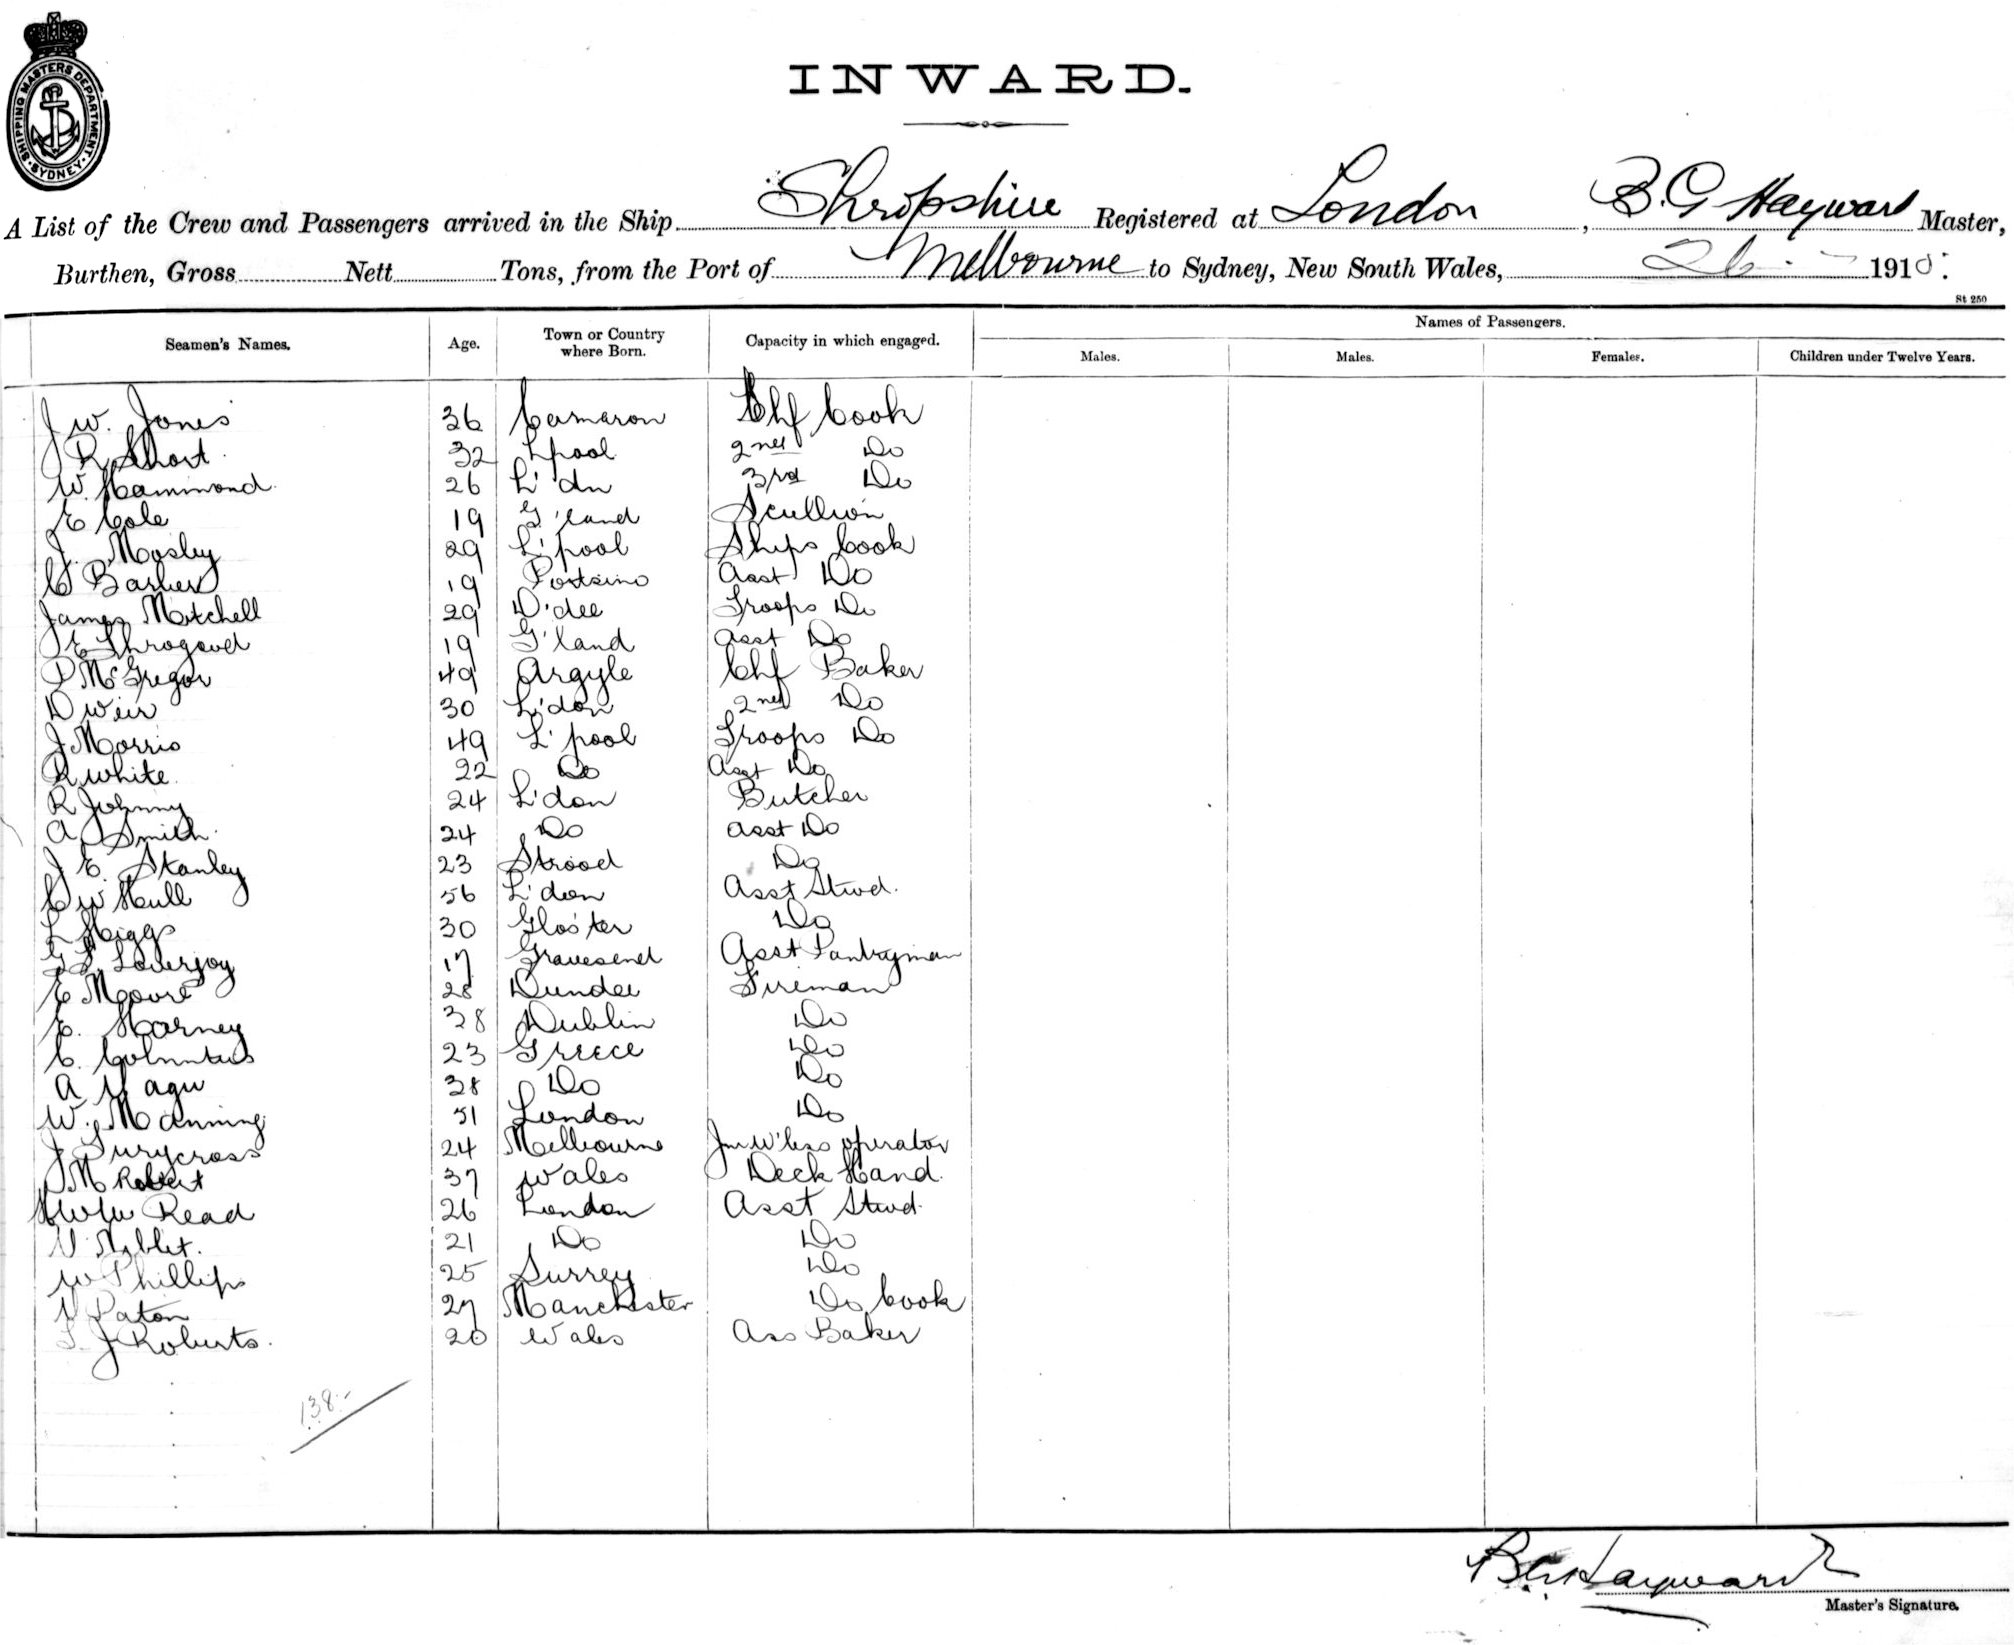 SHIPPING MASTERS DEPARTMENT. SYDNEY
INWARD.
A List of the Crew and Passengers arrived in the Ship Shropshire Registered at London, B.G Hayward Master,
Burthen, Gross Nett Tons, from the Port of Melbourne to Sydney, New South Wales, 26 191
St 250
Seamen's Names. Age. Town or Country where Born. Capacity in which engaged. Names of Passengers.
Males. Males. Females. Children under Twelve Years.
J W. Jones 36 Chf Cook
R Short 32 L'pool 2nd Do
W. Hammond 26 L'dn 3rd Do
E Cole 19 G'land Scullion
J. Mosley 29 L'pool Ships Cook
C Barber 19 Asst Do
James Mitchell 29 D'dee Troops Do
19 G'land Asst Do
P McGregor 49 Argyle Chf Baker
D Weir 30 L'don 2nd Do
J Morris 49 L'pool Troops Do
R White 22 Do Asst Do
R Johnny 24 L'don Butcher
A Smith 24 Do Asst Do
J E. Stanley 23 Strood Do
C W Hull 56 L'don Asst Stwd.
L Higgs 30 Glos'ter Do
Loverjoy 17 Gravesend Asst Pantryman
E Moore 28 Dundee Fireman
E. Harney 38 Dublin Do
C. 23 Greece Do
A 38 Do Do
W. Manning 51 London Do
J 24 Melbourne Jnr W'less operator
M Robert 37 Wales Deck Hand.
Read 26 London Asst Stwd.
21 Do Do
W Phillips 25 Surrey Do
Paton 27 Manchester Do Cook
J Roberts. 20 Wales Ass Baker
138.-
B G Hayward
Master's Signature.